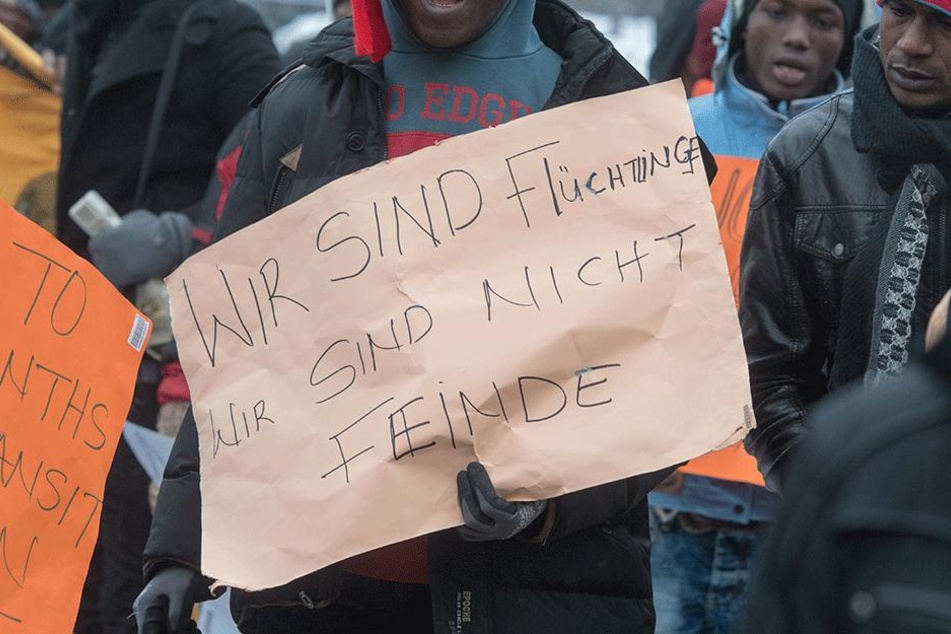 WIR SIND FLÜCHTLINGE
WIR SIND NICHT
FEINDE
TO
NTHS
ANSIT
N
O EDG
EPOCHE